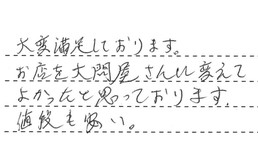 大変満足しております。
お店を大問屋さんに変えて
よかったと思っております。
値段も